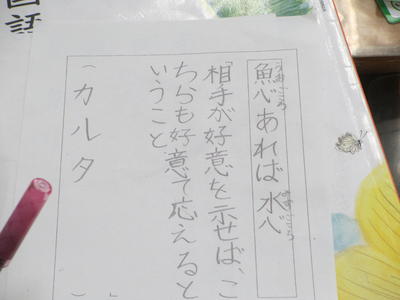 魚心あれば水心
うおごころ
みずごころ
「相手が好意を示せば、こ
ちらも好意で応えると
いうこと 」
( カルタ )
国語